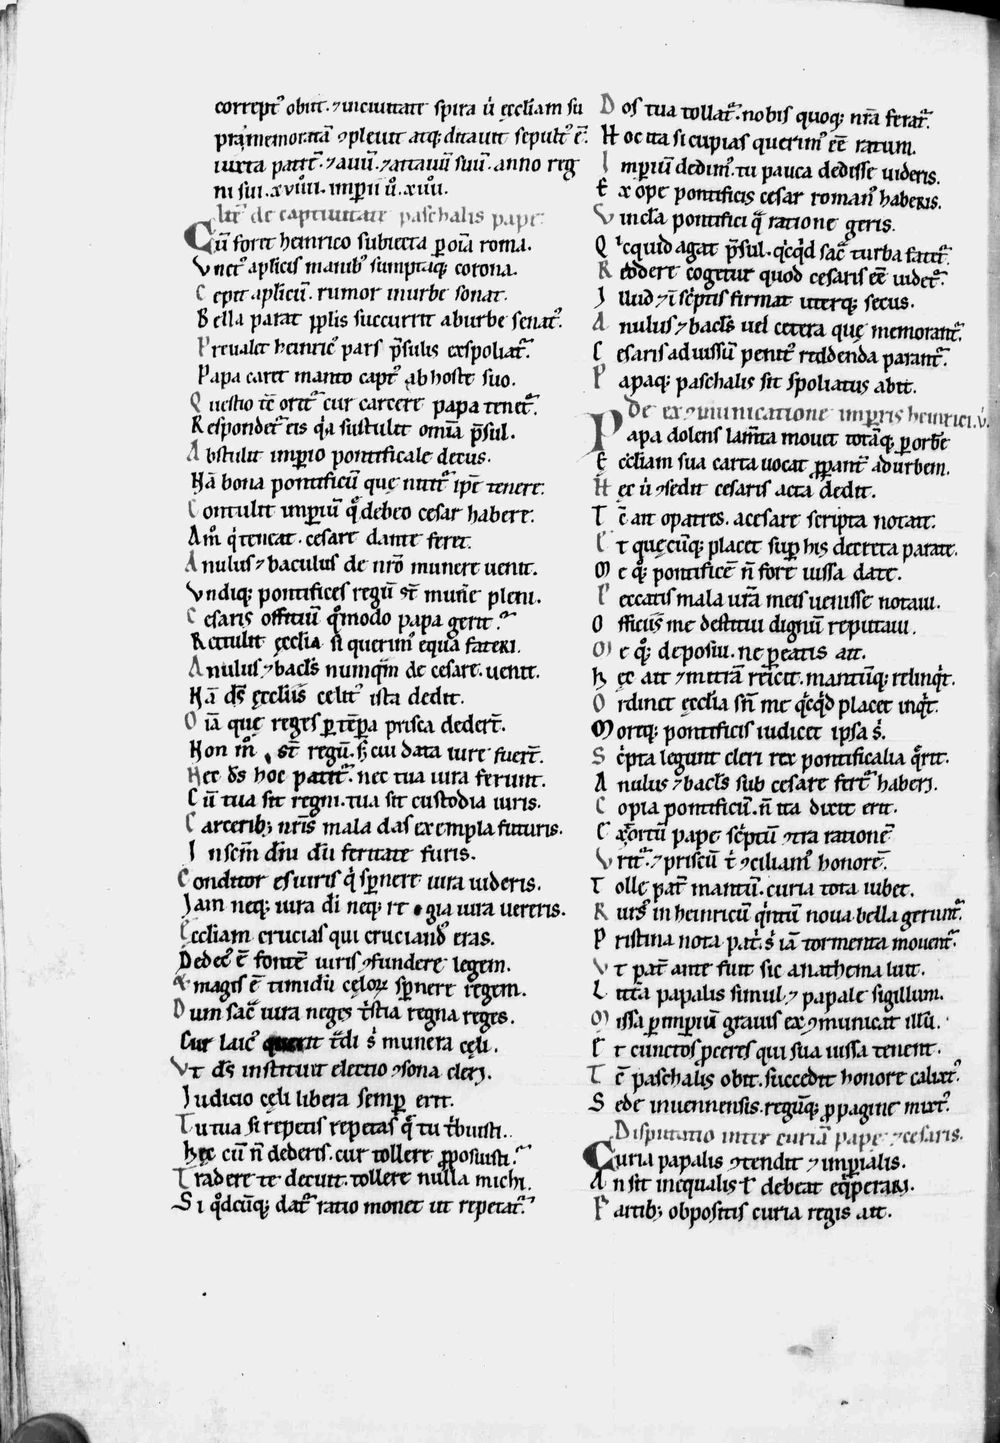 corrept᷒ obiit. ⁊ inciuitate spira ů ęccl̄iam su
pra memoratā ⁊ pleuit atq; ditauit sepult᷒ ē.
iuxta patrē. ⁊ auū. ⁊ attauū suū. anno reg
ni sui .xviiii. imꝑii ů .xiiii.
de captiuitate paschalis pape.
Cū foret heinrico subiecta ꝑ oīa roma.
Vnct᷒ aplicis manib᷒ sumptaq; corona.
Cepit aplicū. rumor inurbe sonat.
Bella parat ꝓplis succurrit aburbe senat᷒.
Preualet heinric᷒ pars p̄sulis exspoliat᷑.
Papa caret manto capt᷒ ab hoste suo.
Questio tē orit᷑ cur carcere papa tenet᷑.
Respondet᷑ eis q̓a sustulit omīa p̄sul.
Abstulit imꝑio pontificale decus.
Nā bona pontificū quę nitit᷑ ip̄e tenere.
Contulit imꝑiū q̊ debeo cesar habere.
Am̊ q̓ teneat. cesare dante feret.
Anulus ⁊ baculus de nr̄o munere uenit.
Vndiq; pontifices regū st̄ mun̄e pleni.
Cesaris offitiū q̊modo papa gerit.
Rettulit ęcclia si querim᷒ equa fateri.
Anulus ⁊ bacl̄s numqm̄ de cesare uenit.
Nā ds̄ ęccliis celit᷒ ista dedit.
Oīa quę reges ꝑ tēꝑa prisca dedert̄.
Non m̊ st̄ regū. s; cui data iure fuert̄.
Nec ds̄ hoc patit᷑. nec tua iura ferunt.
Cū tua sit regni. tua sit custodia iuris.
Carcerib; nr̄is mala das exempla futuris.
Inscm̄ dn̄i dū feritate furis.
Conditor es iuris q̓ sꝑnere iura uideris.
Jam neq; iura di neq; re gia iura uereris.
Eccliam crucias qui cruciand᷒ eras.
Dedec᷒ ē fontē iuris ꝯfundere legem.
magis ē timidū cęloꝝ sꝑnere regem.
Dum sac̄ iura neges t̓stia regna reges.
Cur laic᷒ querit t̄di s̓ munera cęli.
Vt ds̄ instituit electio ꝯsona cleri.
Judicio cęli libera semꝑ erit.
Tu tua si repetis repetas q̄ tu t̓buisti.
Hęc cū n̄ dederis. cur tollere ꝓposuisti.
Tradere te decuit. tollere nulla michi.
Si q̊dcūq; dat᷑ ratio monet ut repetat᷑.
Dos tua tollat᷑. nobis quoq; nr̄a ferat᷑.
Hoc ita si cupias querim᷒ eē ratum.
Imꝑiū dedim᷒. tu pauca dedisse uideris.
Ex ope pontificis cesar roman᷒ haberis.
Vincla pontifici q̄ ratione geris.
Qicquid agat p̄sul. q̓cq̓d sac̄ turba fatit᷑.
Reddere cogetur quod cesaris eē uidet᷑.
Illud ⁊ ī sc̓ptis firmat uterq; secus.
Anulus ⁊ bacl̄s uel cetera quę memorant᷑.
Cesaris ad uissū penit᷒ reddenda parant᷑.
Papaq; paschalis sit spoliatus abit.
De exꝯmunicatione imꝑris heinrici .v.
Papa dolens lam̄ta mouet totāq; ꝑ orbē
Eccliam sua carta uocat ꝓꝑant᷑ ad urbem.
Hec ů ꝯsedit cesaris acta dedit.
Tc̄ ait o patres. accsare scripta notate.
Et quęcūq; placet suꝑ his decreta parate.
Me q̊; pontificē n̄ fore iussa date.
Peccatis mala ur̄a meis uenisse notaui.
Officiis me destitui dignū reputaui.
Me q̊; deposui. ne ꝑeatis ait.
Hęc ait ⁊ mitrā reīcit. mantūq; relinq̓t.
Ordinet ęcclia sn̄ me q̓cq̓d placet inq̓t.
Morteq; pontificis iudicet ipsa s̓.
Sc̓pta legunt cleri rex pontificalia q̄rit.
Anulus ⁊ bacl̄s sub cesare fert᷑ haberi.
Copia pontificū. n̄ ita dixit erit.
Extortū pape sc̓ptū ꝯtra rationē
Vrit᷑. ⁊ priscū t̓ ꝯciliam᷒ honorē.
Tolle pat̄ mantū. curia tota iubet.
Rurs᷒ in heinricū q̓ntū noua bella gerunt᷑.
Pristina nota p̄at. s̓ iā tormenta mouent᷑.
Vt pat̄ ante fuit sic anathema luit.
Littā papalis simul ⁊ papale sigillum.
Missa ꝑ imꝑiū grauis exꝯmunicat illū.
Et cunctos ꝓceres qui sua iussa tenent.
Tc̄ paschalis obit. succedit honore calixt᷒.
Sede inuennensis. regūq; ꝓpagine mixt᷒.
Disputatio inter curiā pape ⁊ cesaris.
Curia papalis ꝯtendit ⁊ imꝑialis.
An sit inequalis t̄ debeat eq̓ꝑari.
Partib; obpositis curia regis ait.